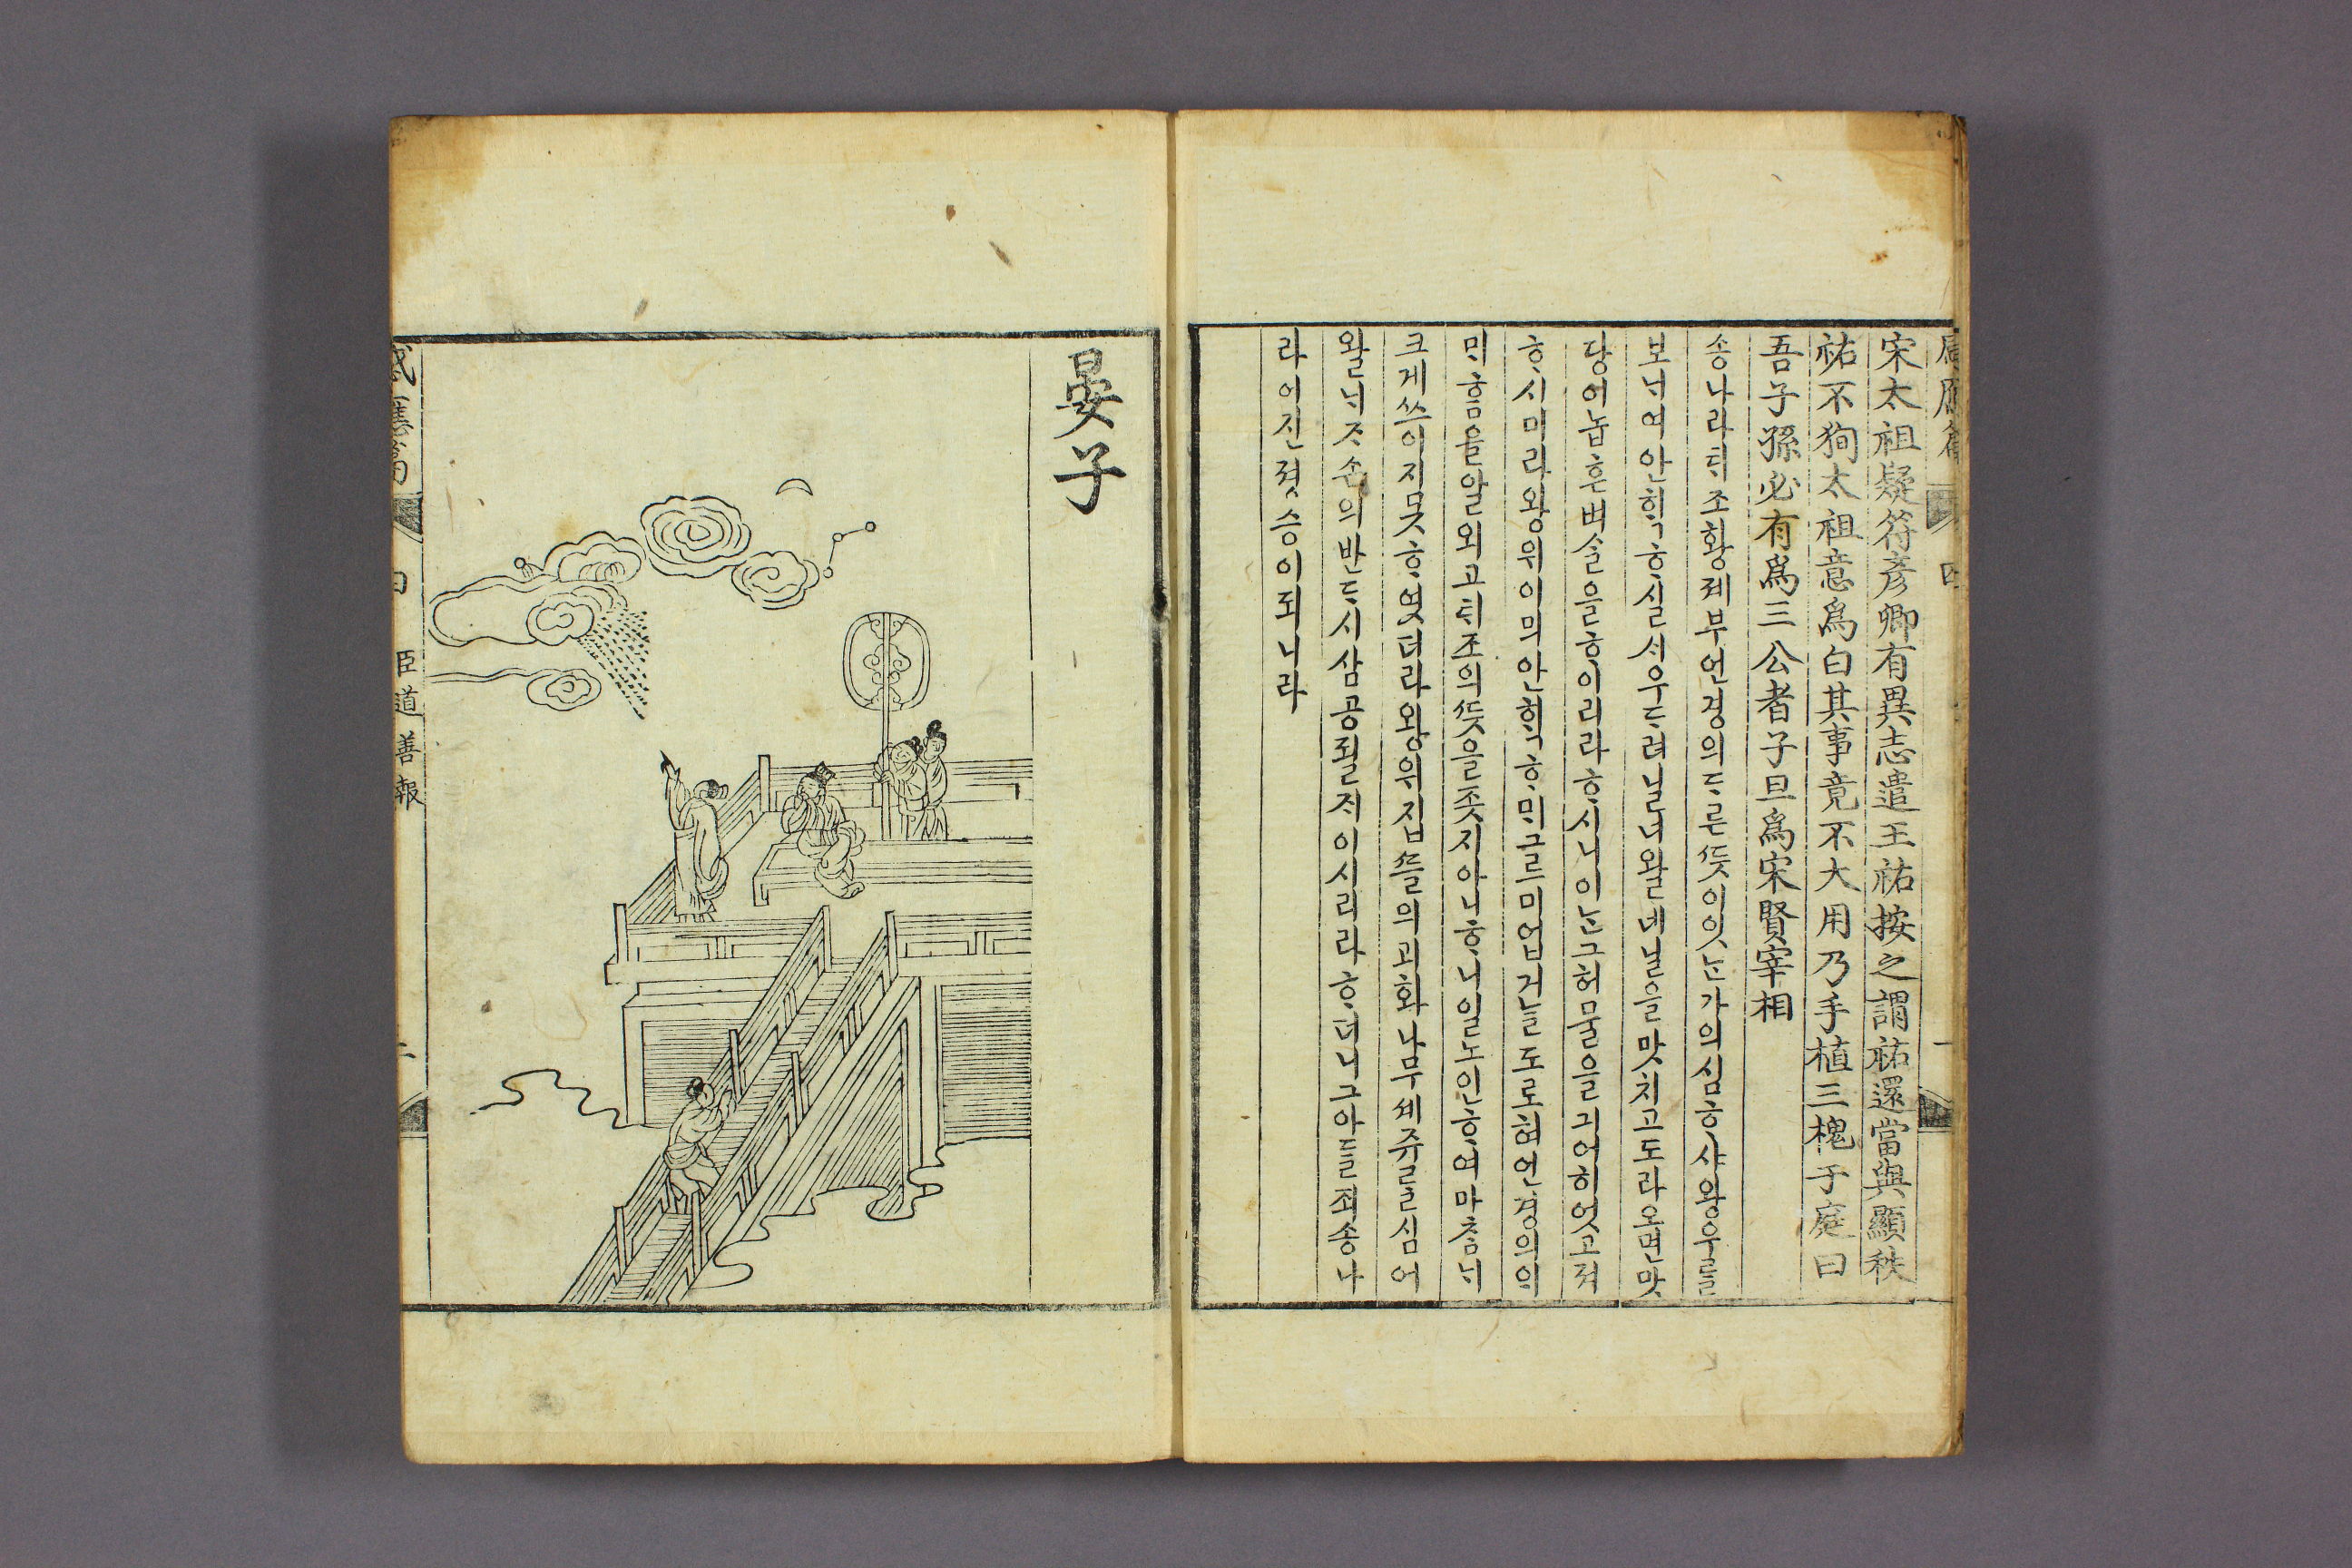 宋太祖疑符彥卿有異志遣王祐按之謂祐還當與顯秩
祐不狥太祖意爲白其事竟不大用乃手植三槐于庭曰
吾子孫必有爲三公者子旦爲宋賢宰相
송나라ᄐᆡ조황졔부언경의ᄃᆞ른ᄯᅳᆺ이잇ᄂᆞᆫ가의심ᄒᆞ샤왕우를
보ᄂᆡ여안ᄒᆡᆨᄒᆞ실ᄉᆡ우ᄃᆞ려닐너왈네닐을맛치고도라오면맛
당이놉흔벼슬을ᄒᆞ이리라ᄒᆞ시니이ᄂᆞᆫ그허물을긔어히엇고져
ᄒᆞ시미라왕위이믜안ᄒᆡᆨᄒᆞᄆᆡ그르미업거늘도로혀언경의의
ᄆᆡᄒᆞᆷ을알외고ᄐᆡ조의ᄯᅳᆺ을좃지아니ᄒᆞ니일노인ᄒᆞ여마ᄎᆞᆷᄂᆡ
크게쓰이지못ᄒᆞ엿더라왕위집ᄯᅳᆯ의괴화나무세쥬를심어
왈ᄂᆡᄌᆞ손의반ᄃᆞ시삼공될ᄌᆡ이시리라ᄒᆞ더니그아ᄃᆞᆯ죄송나
라어진졍승이되니라
晏子
感應篇 臣道善報 二